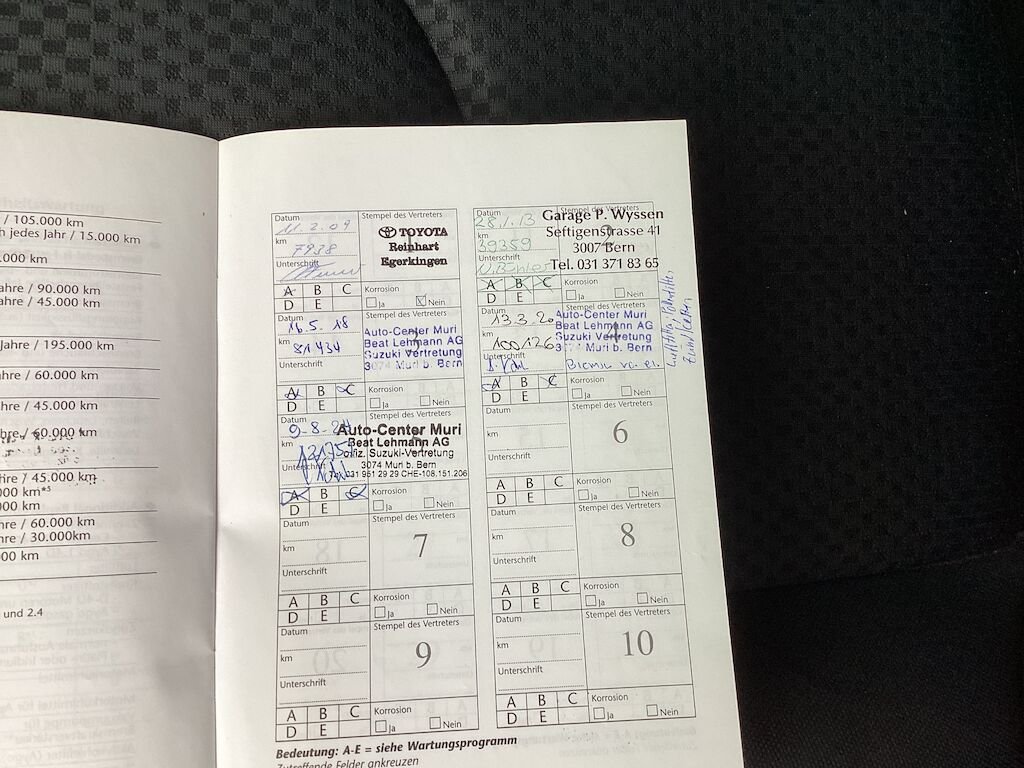 / 105.000 km
h jedes Jahr / 15.000 km
.000 km
ahre / 90.000 km
ahre / 45.000 km
Jahre / 195.000 km
ahre / 60.000 km
ahre / 45.000 km
ahre / 60.000 km
hre / 45.000 km
000 km*⁵
00 km
hre / 60.000 km
hre / 30.000km
000 km
und 2.4
Datum
11.2.09
km
7938
Unterschrift
Stempel des Vertreters
1
TOYOTA
Reinhart
Egerkingen
A B C
D E
Korrosion
Ja Nein
Datum
28.1.13
km
39359
Unterschrift
Stempel des Vertreters
2
Garage P. Wyssen
Seftigenstrasse 41
3007 Bern
Tel. 031 371 83 65
A B C
D E
Korrosion
Ja Nein
Datum
16.5.18
km
81434
Unterschrift
Stempel des Vertreters
3
Auto-Center Muri
Beat Lehmann AG
Suzuki Vertretung
3074 Muri b. Bern
A B C
D E
Korrosion
Ja Nein
Datum
13.3.20
km
100126
Unterschrift
Stempel des Vertreters
4
Auto-Center Muri
Beat Lehmann AG
Suzuki Vertretung
Muri b. Bern
A B C
D E
Korrosion
Ja Nein
Datum
km
Unterschrift
Stempel des Vertreters
Auto-Center Muri
Beat Lehmann AG
offiz. Suzuki-Vertretung
3074 Muri b. Bern
031 951 29 29 CHE-108.151.206
A B C
D E
Korrosion
Ja Nein
Datum
km
Unterschrift
Stempel des Vertreters
6
A B C
D E
Korrosion
Ja Nein
Datum
km
Unterschrift
Stempel des Vertreters
7
A B C
D E
Korrosion
Ja Nein
Datum
km
Unterschrift
Stempel des Vertreters
8
A B C
D E
Korrosion
Ja Nein
Datum
km
Unterschrift
Stempel des Vertreters
9
A B C
D E
Korrosion
Ja Nein
Datum
km
Unterschrift
Stempel des Vertreters
10
A B C
D E
Korrosion
Ja Nein
Bedeutung: A-E = siehe Wartungsprogramm
Zutreffende Felder ankreuzen